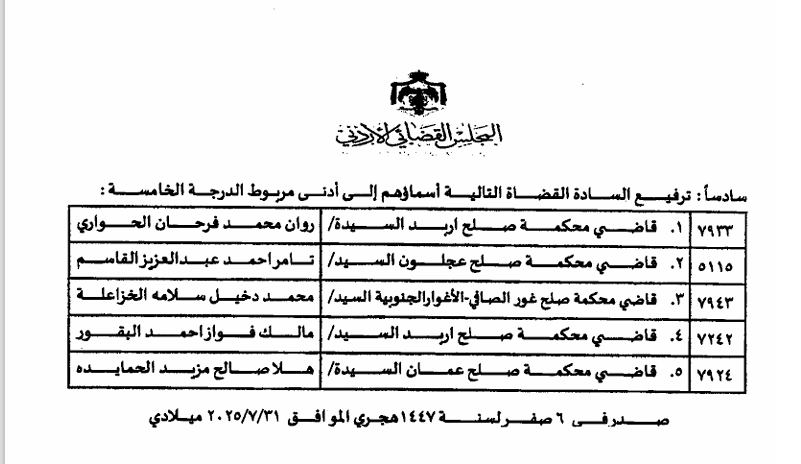 المجلس القضائي الأردني
سادساً: ترفيع السادة القضاة التالية أسماؤهم إلى أدنى مربوط الدرجة الخامسة:
٧٩٣٣ ١. قاضي محكمة صلح اربد السيدة/ روان محمد فرحان الحواري
٥١١٥ ٢. قاضي محكمة صلح عجلون السيد/ تامر احمد عبدالعزيز القاسم
٧٩٤٣ ٣. قاضي محكمة صلح غور الصافي-الأغوار الجنوبية السيد/ محمد دخيل سلامه الخزاعلة
٧٢٤٢ ٤. قاضي محكمة صلح اربد السيد/ مالك فواز احمد البقور
٧٩٢٤ ٥. قاضي محكمة صلح عمان السيدة/ هلا صالح مزيد الحمايده
صدر في ٦ صفر لسنة ١٤٤٧ هجري الموافق ٢٠٢٥/٧/٣١ ميلادي